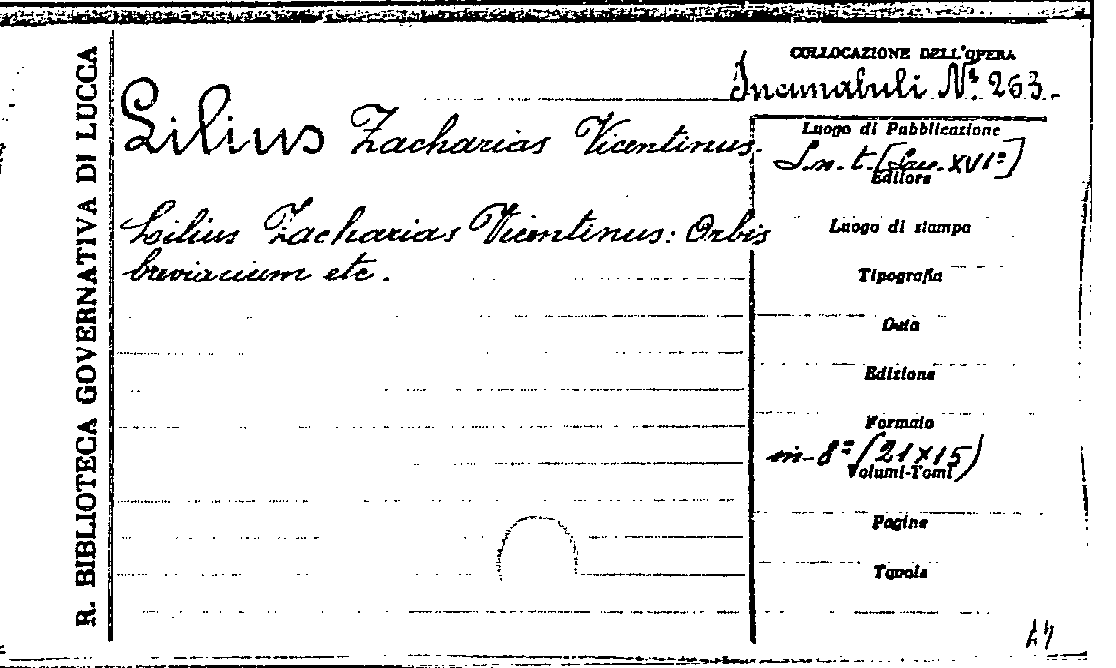 R. BIBLIOTECA GOVERNATIVA DI LUCCA
COLLOCAZIONE DELL'OPERA
Incunabuli N.º 263.
Lilius Zacharias Vicentinus.
Lilius Zacharias Vicentinus: Orbis
breviarium etc.
Luogo di Pubblicazione
S. n. t. [Sec. XVIº]
Editore
Luogo di stampa
Tipografia
Data
Edizione
Formato
in-8º (21×15)
Volumi-Tomi
Pagine
Tavole